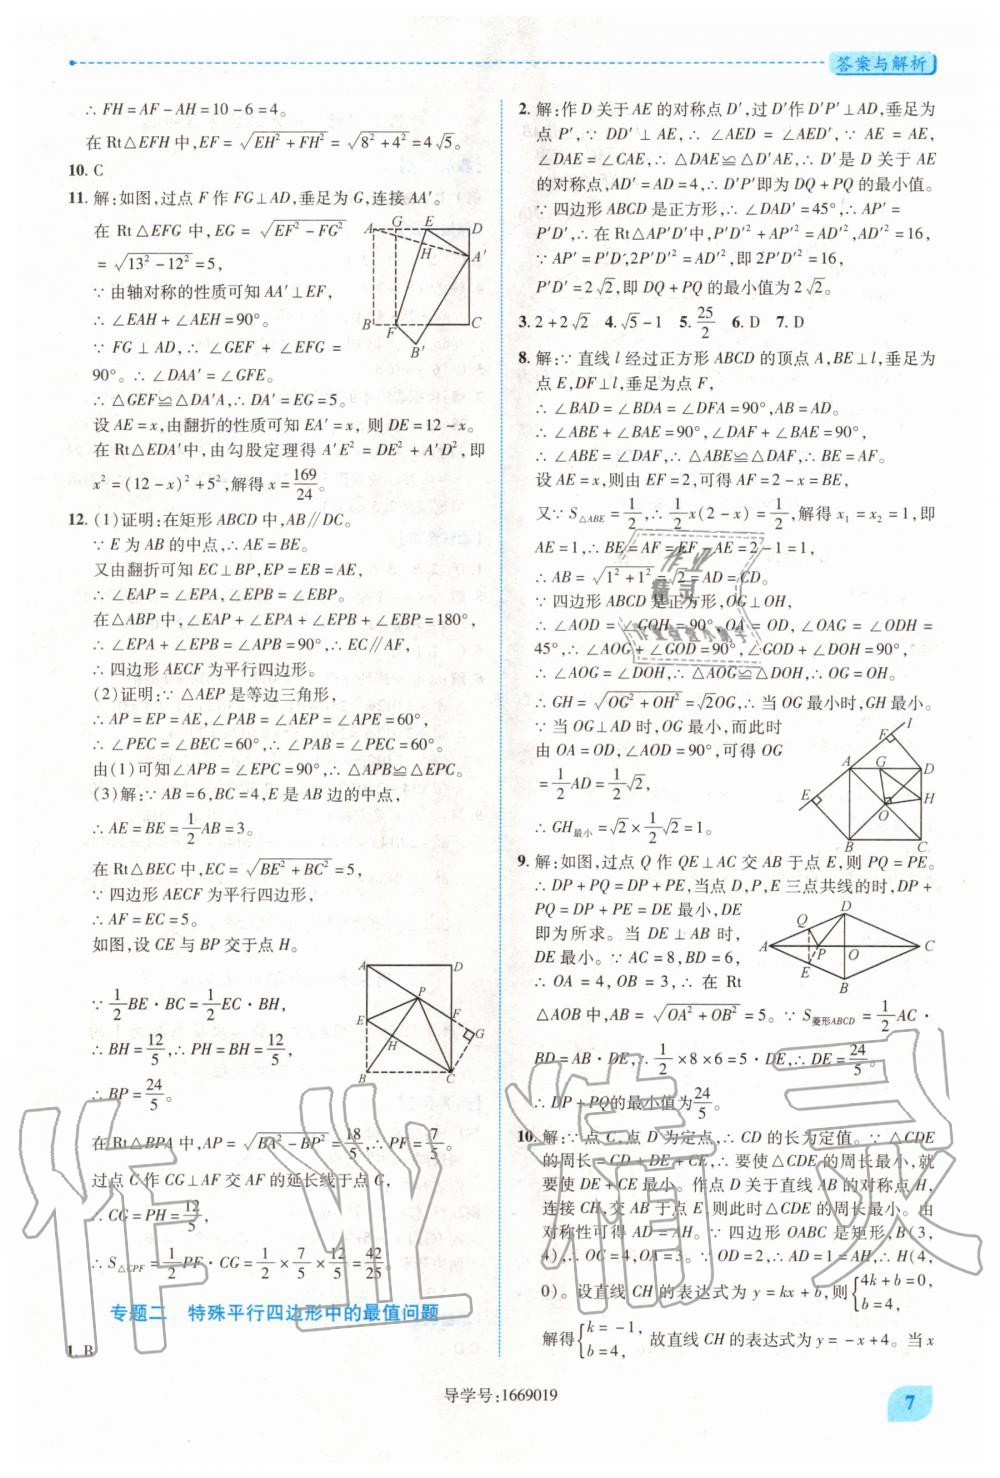 答案与解析
∴FH=AF-AH=10-6=4。
在Rt△EFH中,EF=√(EH²+FH²)=√(8²+4²)=4√5。
10. C
11. 解:如图,过点F作FG⊥AD,垂足为G,连接AA′。
在Rt△EFG中,EG=√(EF²-FG²)
=√(13²-12²)=5,
∵由轴对称的性质可知AA′⊥EF,
∴∠EAH+∠AEH=90°。
∵FG⊥AD,∴∠GEF+∠EFG=
90°。∴∠DAA′=∠GFE。
∴△GEF≌△DA′A,∴DA′=EG=5。
设AE=x,由翻折的性质可知EA′=x,则DE=12-x。
在Rt△EDA′中,由勾股定理得A′E²=DE²+A′D²,即
x²=(12-x)²+5²,解得x=169/24。
12. (1)证明:在矩形ABCD中,AB∥DC。
∵E为AB的中点,∴AE=BE。
又由翻折可知EC⊥BP,EP=EB=AE,
∴∠EAP=∠EPA,∠EPB=∠EBP。
在△ABP中,∠EAP+∠EPA+∠EPB+∠EBP=180°,
∴∠EPA+∠EPB=∠APB=90°,∴EC∥AF,
∴四边形AECF为平行四边形。
(2)证明:∵△AEP是等边三角形,
∴AP=EP=AE,∠PAB=∠AEP=∠APE=60°,
∴∠PEC=∠BEC=60°,∴∠PAB=∠PEC=60°。
由(1)可知∠APB=∠EPC=90°,∴△APB≌△EPC。
(3)解:∵AB=6,BC=4,E是AB边的中点,
∴AE=BE=1/2AB=3。
在Rt△BEC中,EC=√(BE²+BC²)=5,
∵四边形AECF为平行四边形,
∴AF=EC=5。
如图,设CE与BP交于点H。
∵1/2BE·BC=1/2EC·BH,
∴BH=12/5,∴PH=BH=12/5,
∴BP=24/5。
在Rt△BPA中,AP=√(BA²-BP²)=18/5,∴PF=7/5。
过点C作CG⊥AF交AF的延长线于点G,
∴CG=PH=12/5,
∴S△CPF=1/2PF·CG=1/2×7/5×12/5=42/25。
专题二 特殊平行四边形中的最值问题
1. B
2. 解:作D关于AE的对称点D′,过D′作D′P′⊥AD,垂足为
点P′,∵DD′⊥AE,∴∠AED=∠AED′,∵AE=AE,
∠DAE=∠CAE,∴△DAE≌△D′AE,∴D′是D关于AE
的对称点,AD′=AD=4,∴D′P′即为DQ+PQ的最小值。
∵四边形ABCD是正方形,∴∠DAD′=45°,∴AP′=
P′D′,∴在Rt△AP′D′中,P′D′²+AP′²=AD′²,AD′²=16,
∵AP′=P′D′,2P′D′²=AD′²,即2P′D′²=16,
P′D′=2√2,即DQ+PQ的最小值为2√2。
3. 2+2√2 4. √5-1 5. 25/2 6. D 7. D
8. 解:∵直线l经过正方形ABCD的顶点A,BE⊥l,垂足为
点E,DF⊥l,垂足为点F,
∴∠BAD=∠BDA=∠DFA=90°,AB=AD。
∴∠ABE+∠BAE=90°,∠DAF+∠BAE=90°,
∴∠ABE=∠DAF,∴△ABE≌△DAF,∴BE=AF。
设AE=x,则由EF=2,可得AF=2-x=BE,
又∵S△ABE=1/2,∴1/2x(2-x)=1/2,解得x₁=x₂=1,即
AE=1,∴BE=AF=EF-AE=2-1=1,
∴AB=√(1²+1²)=√2=AD=CD。
∵四边形ABCD是正方形,OG⊥OH,
∴∠AOD=∠GOH=90°,OA=OD,∠OAG=∠ODH=
45°,∴∠AOG+∠GOD=90°,∠GOD+∠DOH=90°,
∴∠AOG=∠DOH,∴△AOG≌△DOH,∴OG=OH,
∴GH=√(OG²+OH²)=√2OG,∴当OG最小时,GH最小。
∵当OG⊥AD时,OG最小,而此时
由OA=OD,∠AOD=90°,可得OG
=1/2AD=1/2√2,
∴GH最小=√2×1/2√2=1。
9. 解:如图,过点Q作QE⊥AC交AB于点E,则PQ=PE。
∴DP+PQ=DP+PE,当点D,P,E三点共线的时,DP+
PQ=DP+PE=DE最小,DE
即为所求。当DE⊥AB时,
DE最小。∵AC=8,BD=6,
∴OA=4,OB=3,∴在Rt
△AOB中,AB=√(OA²+OB²)=5。∵S菱形ABCD=1/2AC·
BD=AB·DE,∴1/2×8×6=5·DE,∴DE=24/5。
∴DP+PQ的最小值为24/5。
10. 解:∵点C,点D为定点,∴CD的长为定值。∵△CDE
的周长=CD+CE+DE,∴要使△CDE的周长最小,即
要使DE+CE最小。作点D关于直线AB的对称点H,
连接CH,交AB于点E,则此时△CDE的周长最小。由
对称性可得AD=AH。∵四边形OABC是矩形,B(3,
4),∴OC=4,OA=3。∵OD=2,∴AD=1=AH,∴H(4,
0)。设直线CH的表达式为y=kx+b,则{4k+b=0, b=4,
解得{k=-1, b=4, 故直线CH的表达式为y=-x+4。当x
导学号:1669019
7